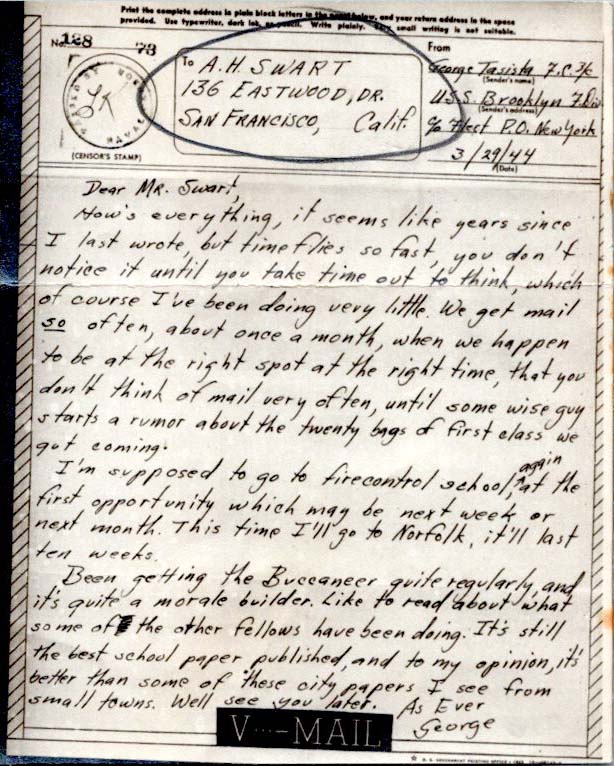 Print the complete address in plain block letters in the panel below, and your return address in the space
provided. Use typewriter, dark ink, or pencil. Write plainly. Very small writing is not suitable.
No. 128 73
PASSED BY NAVAL
(CENSOR'S STAMP)
To A.H. SWART
136 EASTWOOD, DR.
SAN FRANCISCO, Calif.
From
George Tasista F.C. 3/c
(Sender's name)
U.S.S. Brooklyn F. Div
(Sender's address)
c/o Fleet P.O. New York
3/29/44
(Date)
Dear Mr. Swart,
How's everything, it seems like years since
I last wrote, but time flies so fast, you don't
notice it until you take time out to think, which
of course I've been doing very little. We get mail
so often, about once a month, when we happen
to be at the right spot at the right time, that you
don't think of mail very often, until some wise guy
starts a rumor about the twenty bags of first class we
got coming.
I'm supposed to go to firecontrol school, again at the
first opportunity which may be next week or
next month. This time I'll go to Norfolk, it'll last
ten weeks.
Been getting the Buccaneer quite regularly, and
it's quite a morale builder. Like to read about what
some of the other fellows have been doing. It's still
the best school paper published, and to my opinion, it's
better than some of these city papers I see from
small towns. Well see you later. As Ever
George
V···—MAIL
U. S. GOVERNMENT PRINTING OFFICE